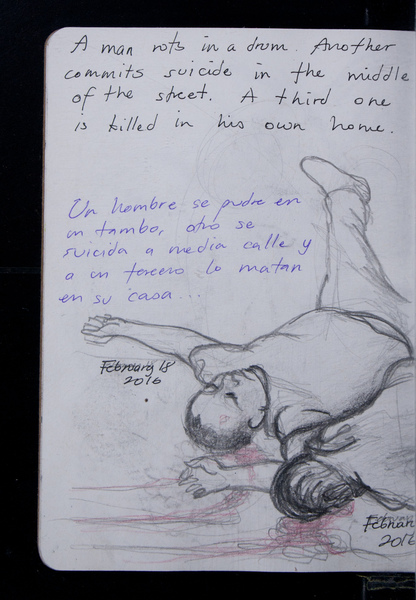 A man rots in a drum. Another
commits suicide in the middle
of the street. A third one
is killed in his own home.
Un hombre se pudre en
un tambo, otro se
suicida a media calle y
a un tercero lo matan
en su casa...
February 18
2016
Februar
2016